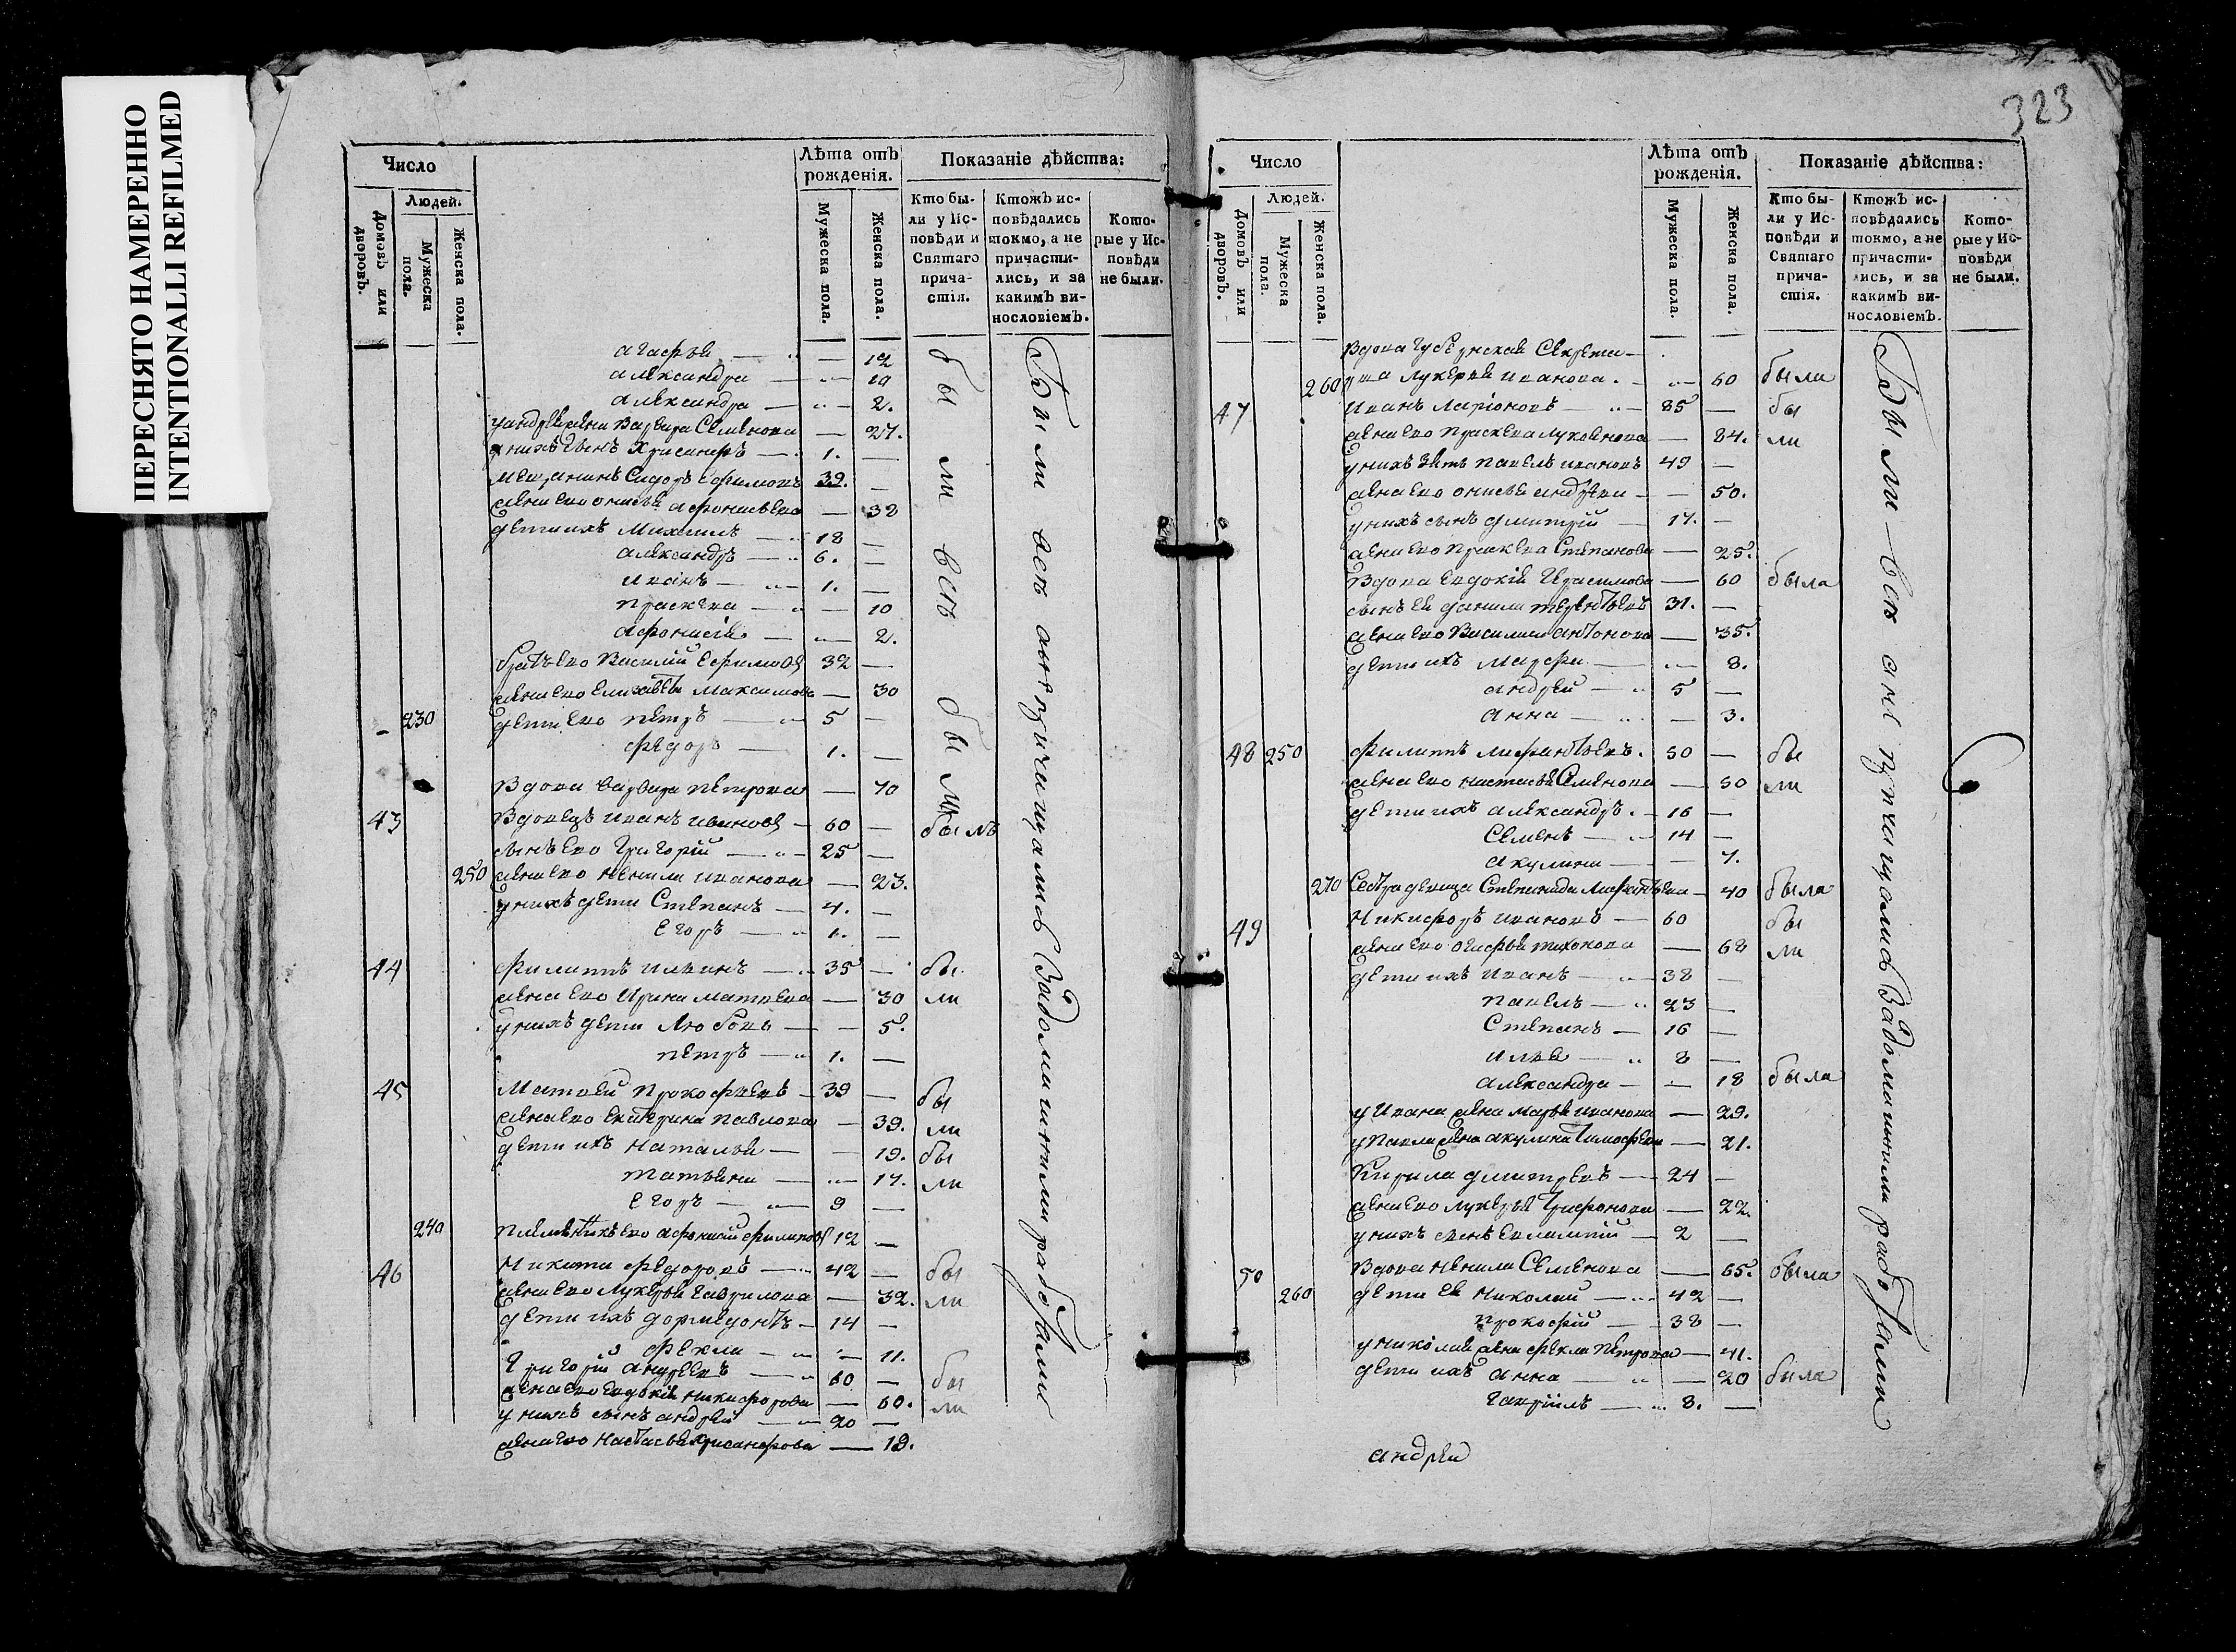 ПЕРЕСНЯТО НАМЕРЕННО
INTENTIONALLI REFILMED
Число
Людей.
Домовъ или дворовъ.
Мужеска пола.
Женска пола.
Лѣта отъ рожденія.
Мужеска пола.
Женска пола.
Показаніе дѣйства:
Кто бы-
ли у Ис-
повѣди и
Святаго
прича-
стія.
Ктожъ ис-
повѣдались
токмо, а не
причасти-
лись, и за
какимъ ви-
нословіемъ.
Кото-
рые у Ис-
повѣди
не были.
агафья — 12
александра — 10
александра — 2.
у андрея жена Варвара Семенова — 27.
у нихъ сынъ Хрисанфъ — 1. —
мещанинъ Сидоръ Ефимовъ 39. —
жена ево онисья афонасьева — 38
дети ихъ Михаилъ — 18 —
александръ — 6. —
иванъ — 1. —
праскева — 10
афонасія — 2.
братъ ево Василий Ефимовъ 32 —
жена ево Елизавета Максимова — 30
230 дети ево петръ — 5 —
федоръ — 1. —
Вдова варвара петрова — 70
43 Вдовецъ иванъ ивановъ — 60 — былъ
сынъ ево Григорій — 25 —
250 жена ево ненила иванова — 23.
у нихъ дети Степанъ — 4. —
Егоръ — 1. —
44 филиппъ ильинъ — 35 — бы
жена ево Ирина Матвева — 30 ли
у нихъ дети Любовь — 5.
петръ — 1. —
45 Матвей Прокофьевъ — 39 — бы
жена ево Екатерина павлова — 39. ли
дети ихъ Наталья — 19. бы
татьяна — 17. ли
Егоръ — 9 —
240 племянникъ ево афонасий филиповъ 12 —
46 Никита федоровъ — 42 — бы
жена ево Лукерья Гаврилова — 32. ли
дети ихъ дормедонтъ — 14 —
фекла — 11.
Григорій андреевъ — 60 — бы
жена ево Евдокія никифорова — 60. ли
у нихъ сынъ андрей — 20 —
жена ево Настасья хрисанфова — 19.
бы ли всѣ бы ли
Были всѣ а не причащались За домашними работами
323
Число
Людей.
Домовъ или дворовъ.
Мужеска пола.
Женска пола.
Лѣта отъ рожденія.
Мужеска пола.
Женска пола.
Показаніе дѣйства:
Кто бы-
ли у Ис-
повѣди и
Святаго
прича-
стія.
Ктожъ ис-
повѣдались
токмо, а не
причасти-
лись, и за
какимъ ви-
нословіемъ.
Кото-
рые у Ис-
повѣди
не были.
Вдова Губернская Секрета-
260 рша Лукерья иванова. — 60 была
47 иванъ Ларіоновъ — 85 — бы
жена ево праскева лукоянова — 84. ли
у нихъ зять павелъ ивановъ 49 —
жена ево онисья андреева — 50.
у нихъ сынъ дмитрій — 17. —
жена ево праскева Степанова — 25.
Вдова Евдокія Ирасимова — 60 была
сынъ ея данила терентьевъ 31. —
жена ево Василиса антонова — 35.
дети ихъ марфа — 8.
андрей — 5 —
анна — 3.
48 250 филиппъ лифантьевъ. 50 — бы
жена ево настасья Семенова — 50 ли
дети ихъ александръ. — 16 —
Семенъ — 14 —
акулина — 7.
270 Сестра девица Степанида Лифантьева — 40 была
49 Никифоръ ивановъ — 60 бы
жена ево огафья тихонова — 68 ли
дети ихъ иванъ — 38 —
павелъ — 23 —
Степанъ — 16 —
илья — 8 —
александра — 18 была
у Ивана жена марья иванова — 29.
у павла жена акулина тимофеева — 21.
Кирила дмитревъ — 24 —
жена ево лукерья трифонова — 22.
у нихъ сынъ евлампий — 2 —
50 Вдова ненила Семенова — 65. была
260 дети ея николай — 42 —
прокофій — 38 —
у николая жена фекла петрова — 41.
дети ихъ анна — 20 была
гаврiилъ — 8. —
андреи
Были всѣ а не причащались За домашними работами